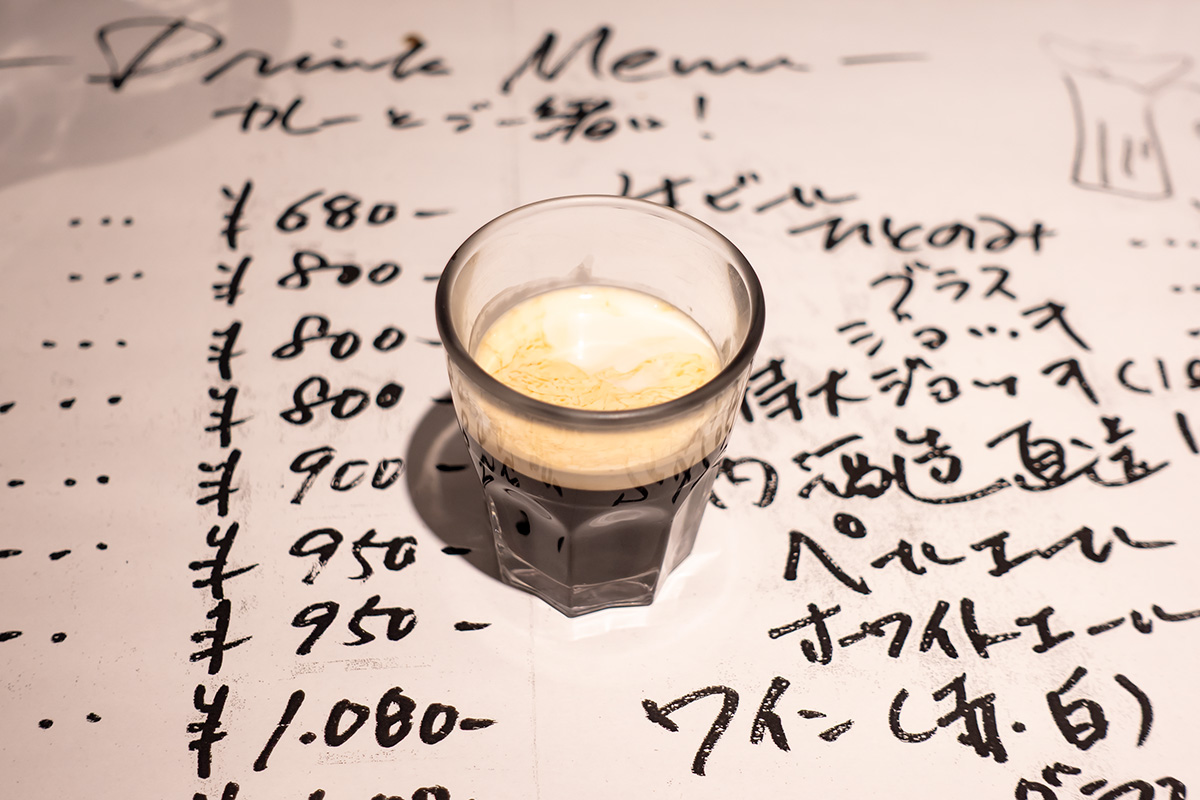 Drink Menu
カレーとご一緒に!
... ¥680-
... ¥800-
... ¥800-
... ¥800-
... ¥900-
... ¥950-
.. ¥950-
.. ¥1.080-
ビール
ひとのみ ...
グラス
ジョッキ
特大ジョッキ(1
酒造直送!
ペールエール
ホワイトエール
ワイン(赤・白)
グラス